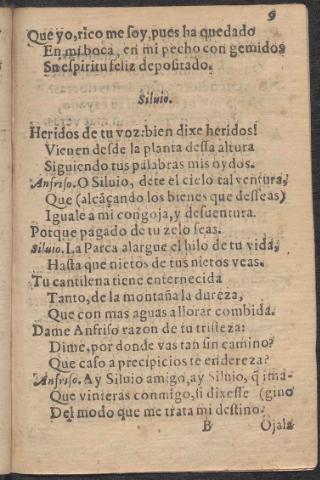 9
Que yo, rico me soy, pues ha quedado
En mi boca, en mi pecho con gemidos
Su espiritu feliz depositado.
Siluio.
Heridos de tu voz: bien dixe heridos!
Vienen desde la planta dessa altura
Siguiendo tus palabras mis oydos.
Anfriso. O Siluio, dete el cielo tal ventura,
Que (alcãçando los bienes que desseas)
Iguale a mi congoja, y desuentura.
Porque pagado de tu zelo seas.
Siluio. La Parca alargue el hilo de tu vida,
Hasta que nietos de tus nietos veas.
Tu cantilena tiene enternecida
Tanto, de la montaña la dureza,
Que con mas aguas a llorar combida.
Dame Anfriso razon de tu tristeza:
Dime, por donde vas tan sin camino?
Que caso a precipicios te endereza?
Anfriso. Ay Siluio amigo, ay Siluio, q̃ ima-
Que vinieras conmigo, si dixesse (gino
Del modo que me trata mi destino.
B Ojala